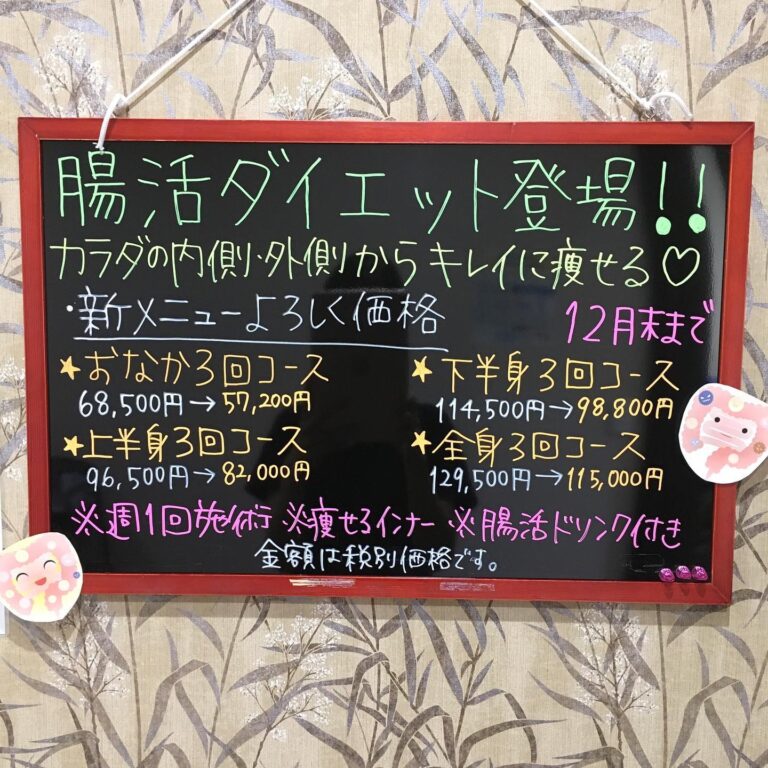 腸活ダイエット登場!!
カラダの内側・外側からキレイに痩せる♡
・新メニューよろしく価格
12月末まで
★おなか3回コース
68,500円→57,200円
★下半身3回コース
114,500円→98,800円
★上半身3回コース
96,500円→82,000円
★全身3回コース
129,500円→115,000円
※週1回施術 ※痩せるインナー ※腸活ドリンク付き
金額は税別価格です。